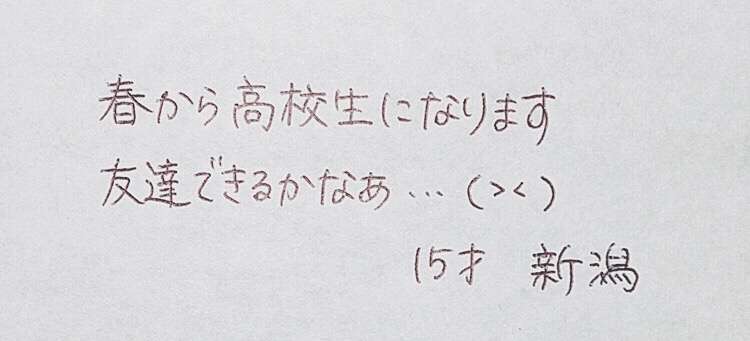 春から高校生になります
友達できるかなあ…(><)
15才 新潟